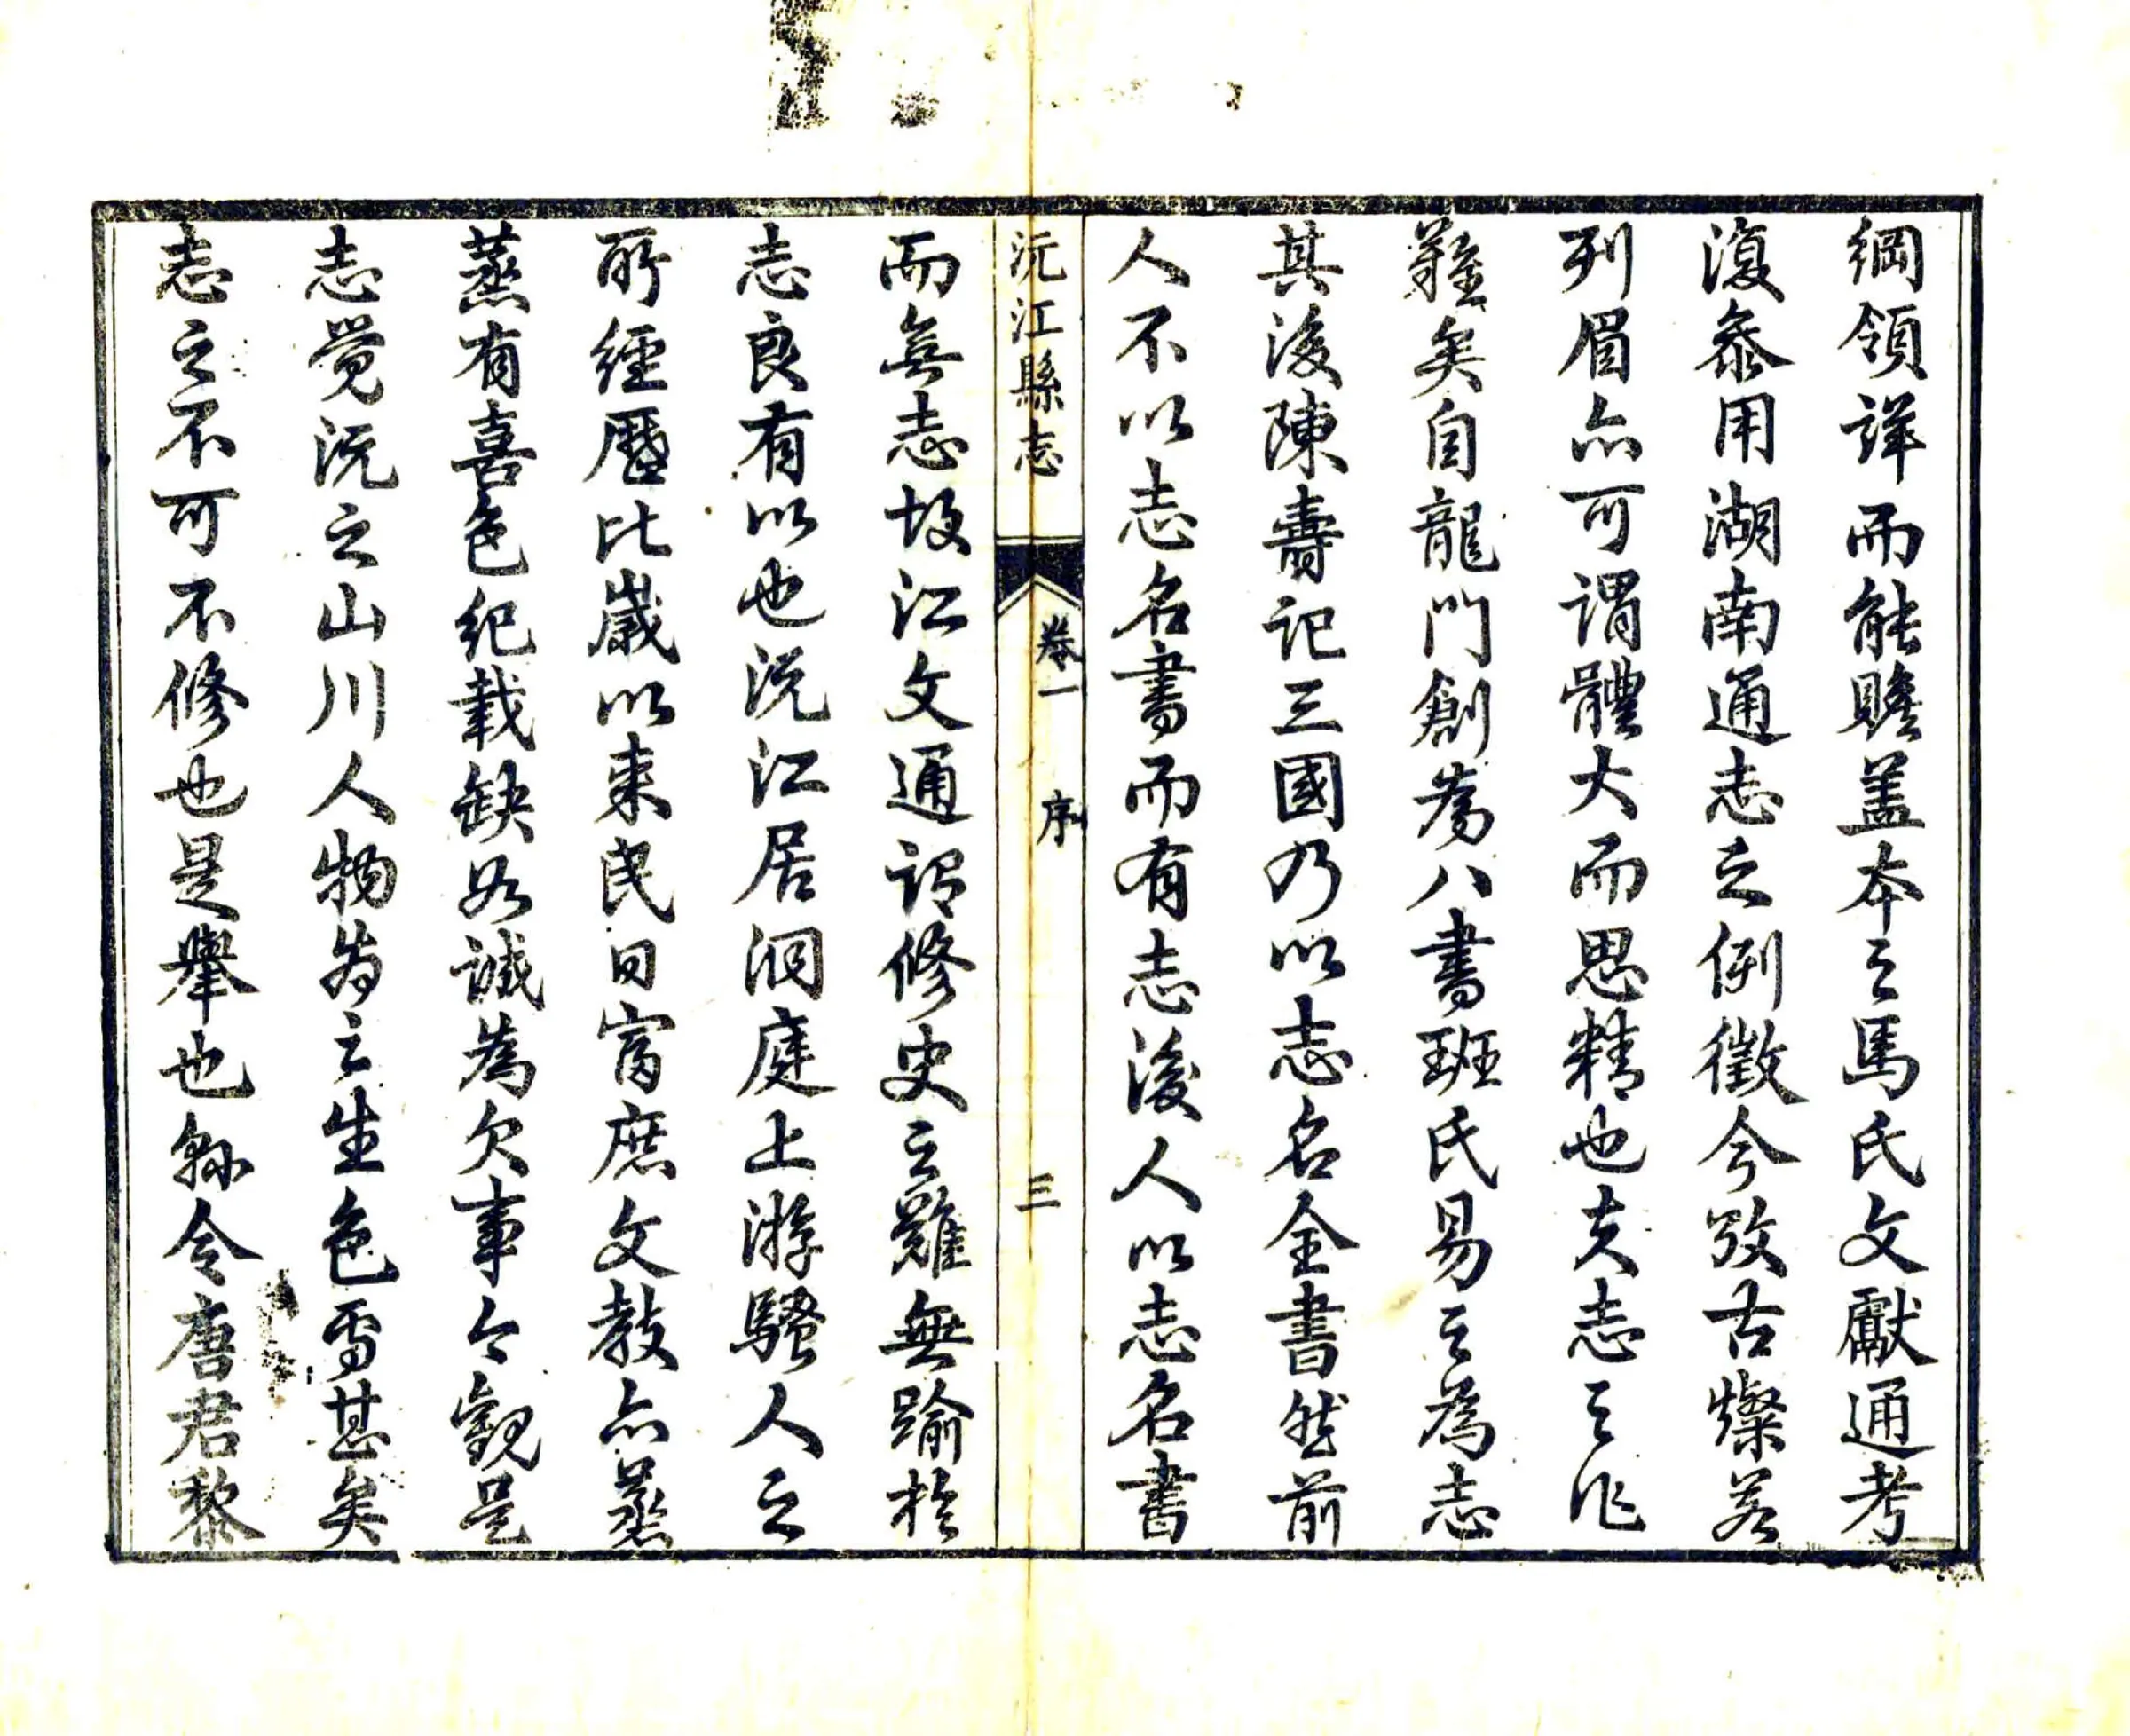 綱領詳而能賅蓋本之馬氏文獻通考
復叅用湖南通志之例徵今攷古燦若
列眉亦可謂體大而思精也夫志之作
難矣自龍門創爲八書班氏易之爲志
其後陳壽記三國乃以志名全書然前
人不以志名書而有志後人以志名書
沅江縣志
卷一
序
三
而無志故江文通謂修史之難無踰於
志良有以也沅江居洞庭上游騷人之
所經歷比歲以來民日富庶文教亦蒸
蒸有喜色紀載缺如誠爲欠事今觀是
志覺沅之山川人物爲之生色焉甚矣
志之不可不修也是舉也縣令唐君黎